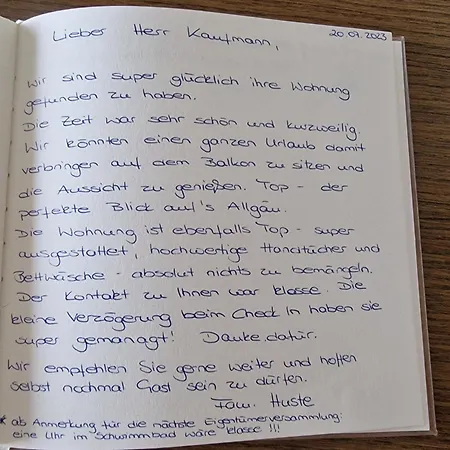 Lieber Herr Kaufmann,
20.07.2023
Wir sind super glücklich ihre Wohnung
gefunden zu haben.
Die Zeit war sehr schön und kurzweilig.
Wir könnten einen ganzen Urlaub damit
verbringen auf dem Balkon zu sitzen und
die Aussicht zu genießen. Top - der
perfekte Blick auf's Allgäu.
Die Wohnung ist ebenfalls Top - super
ausgestattet, hochwertige Handtücher und
Bettwäsche - absolut nichts zu bemängeln.
Der Kontakt zu Ihnen war klasse. Die
kleine Verzögerung beim Check In haben sie
super gemanagt! Danke dafür.
Wir empfehlen Sie gerne weiter und hoffen
selbst nochmal Gast sein zu dürfen.
Fam. Huste
* ab Anmerkung für die nächste Eigentümerversammlung:
eine Uhr im Schwimmbad wäre klasse !!!